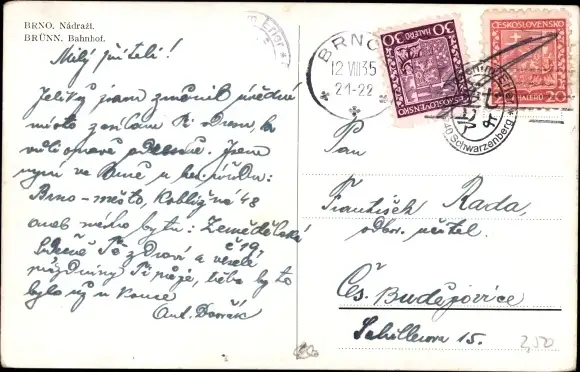 BRNO. Nádraží.
BRÜNN. Bahnhof.
Milý příteli!
Jelikož jsem změnil úřední
místo zasílám Ti dnes
Jsem
nyní ve Brně u
Brno-město, Kobližná 48
aneb mého bytu: Zemědělská
č 19.
Srdečně Tě zdraví a veselé
prázdniny Ti přeje, třeba by to
bylo již u konce
Ant. Dvořák
BRNO
12 VIII 35
21-22
30 HALÉŘŮ 30
ČESKOSLOVENSKO
ČESKOSLOVENSKO
20 HALÉŘŮ 20
Schwarzenberg
Pan
František Rada,
odbor. učitel.
Čes. Budějovice
Schillerova 15.
2,50